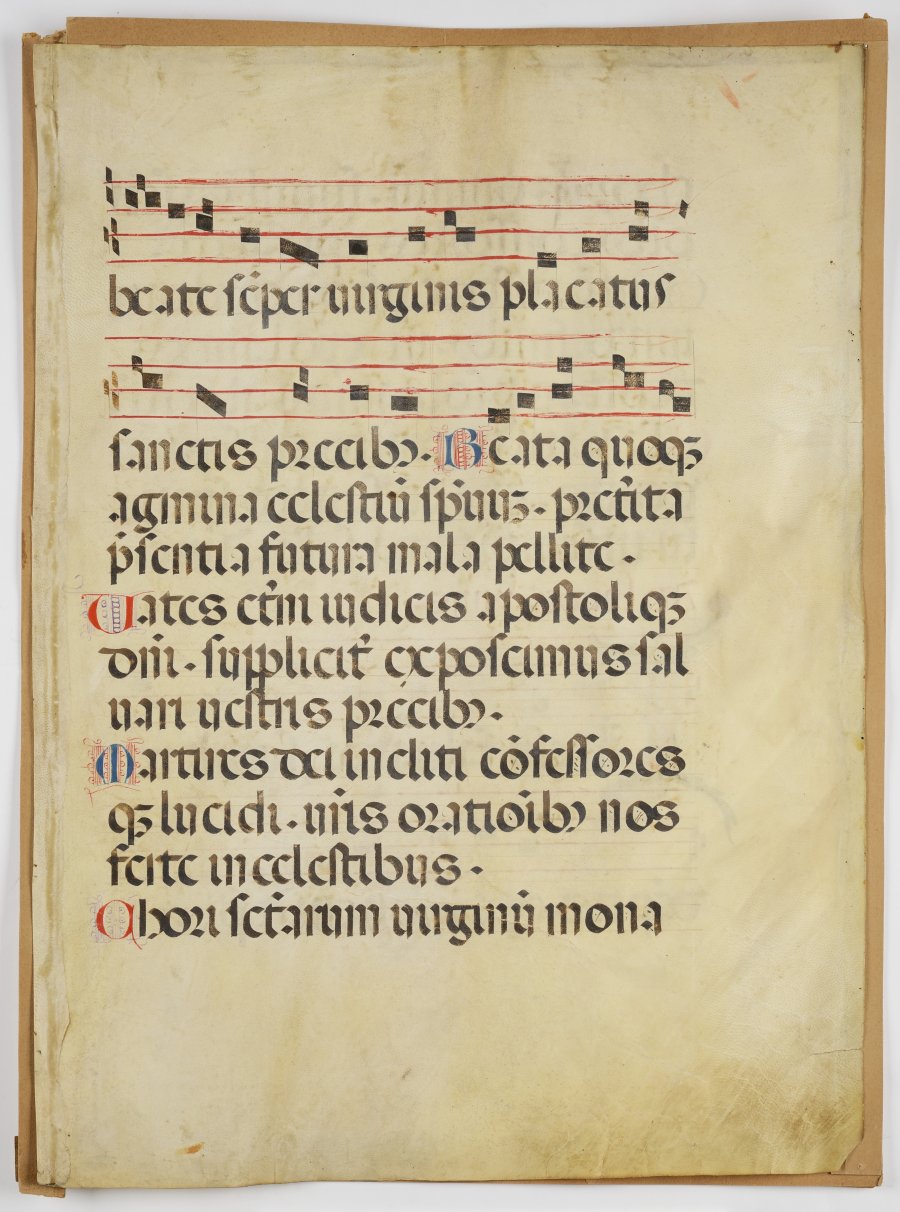 beate sēper uirginis placatus
sanctis precibꝰ. Beata quoqꝫ
agmina celestiū sp̄uūꝫ. pretīta
p̄sentia futura mala pellite.
Uates etn̄i iudicis apostoliqꝫ
dn̄i. suppliciť exposcimus sal
uari uestris precibꝰ.
Martires dei incliti cōfessores
qꝫ lucidi. ur̄is oratiōibꝰ nos
feite in celestibus.
Chori sct̄arum uirginū mona